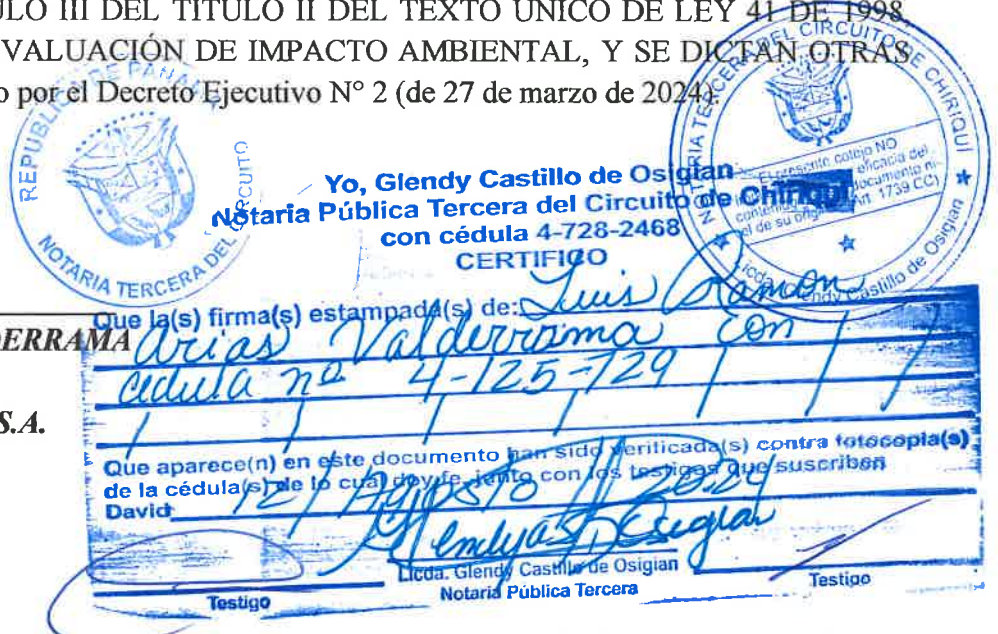 ULO III DEL TÍTULO II DEL TEXTO ÚNICO DE LEY 41 DE 1998,
VALUACIÓN DE IMPACTO AMBIENTAL, Y SE DICTAN OTRAS
o por el Decreto Ejecutivo N° 2 (de 27 de marzo de 2024).
REPUBLICA DE PANAMA
NOTARIA TERCERA DEL CIRCUITO
NOTARIA TERCERA DEL CIRCUITO DE CHIRIQUI
El presente cotejo NO
eficacia del
documento
contenido
el de su original Art. 1739 CC)
Licda. Glendy Castillo de Osigian
Yo, Glendy Castillo de Osigian
Notaria Pública Tercera del Circuito de Chiriquí
con cédula 4-728-2468
CERTIFICO
Que la(s) firma(s) estampada(s) de: Luis Ramon
DERRAMA
Arias Valderrama con
cedula nº 4-125-729
S.A.
Que aparece(n) en este documento han sido verificada(s) contra fotocopia(s)
de la cédula(s) de lo cual doy fe, junto con los testigos que suscriben
David 12 / Agosto // 2024
Licda. Glendy Castillo de Osigian
Testigo
Notaria Pública Tercera
Testigo